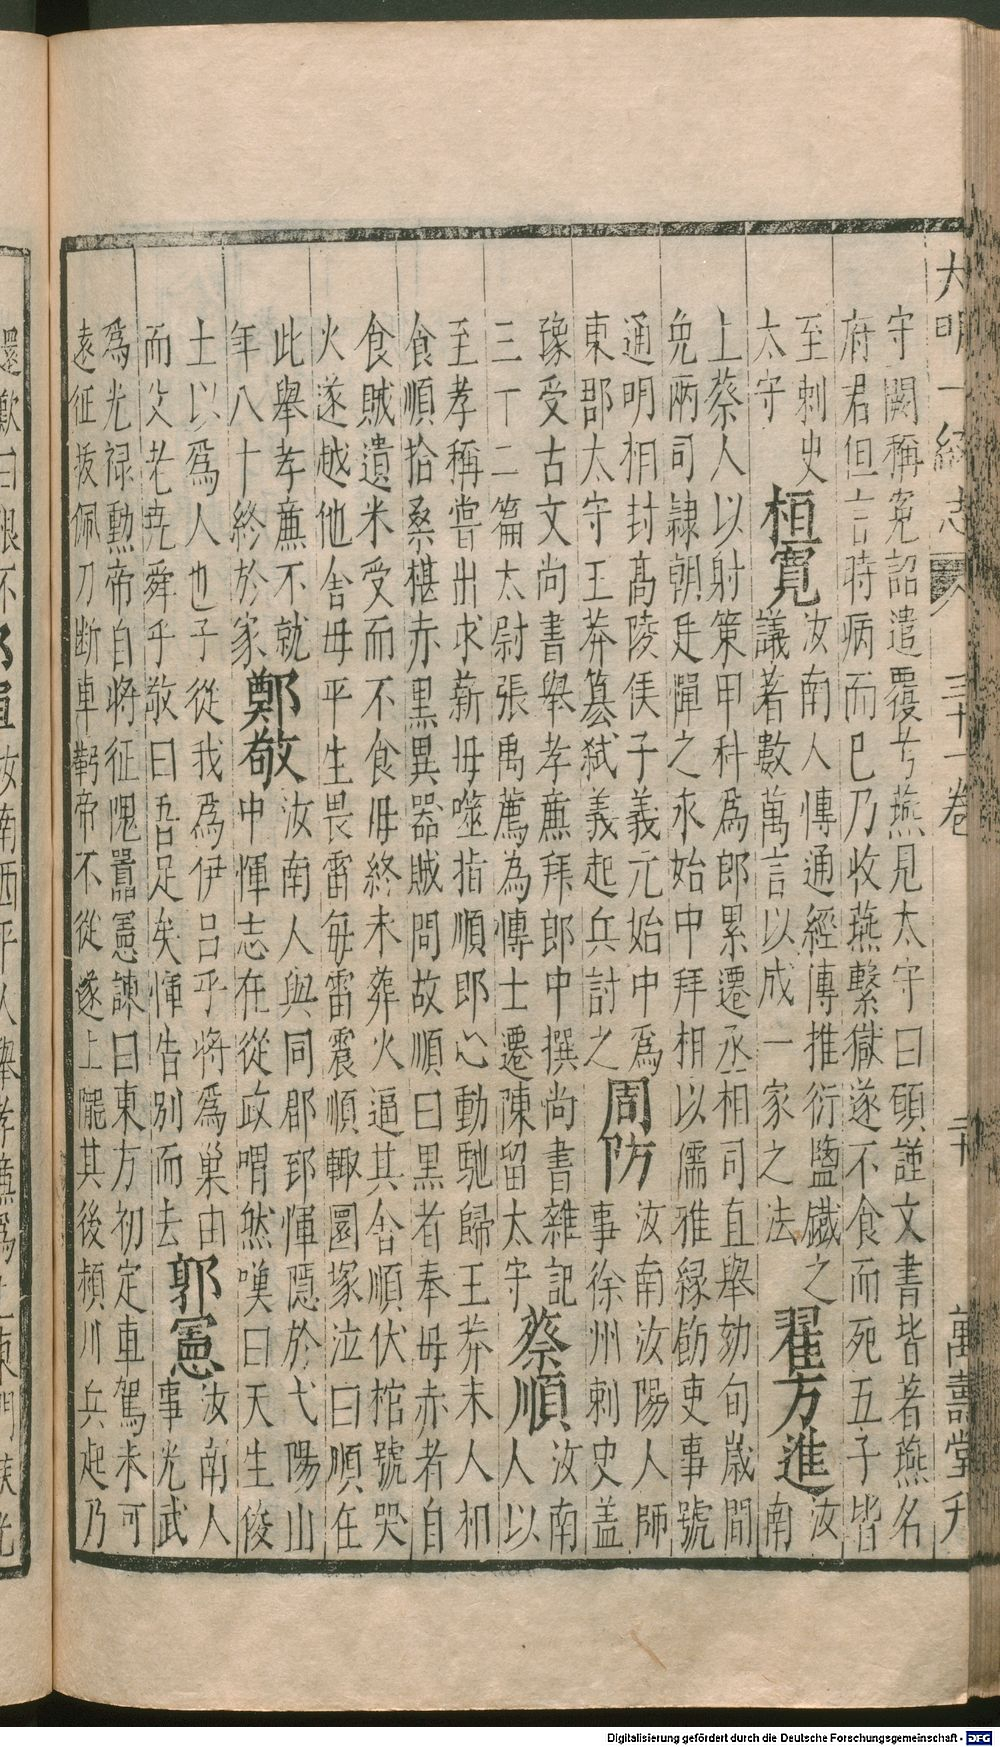 大明一統志 卷三十一卷 二十 萬壽堂刋
守闕稱冤詔遣覆考燕見太守曰頭謹文書皆著燕名
府君但言時病而已乃收燕繫獄遂不食而死五子皆
至刺史
太守
桓寬
汝南人博通經傳推衍鹽鐵之
議著數萬言以成一家之法
翟方進
汝
南
上蔡人以射策甲科爲郎累遷丞相司直舉劾旬歲間
免兩司隷朝廷憚之永始中拜相以儒雅縁飭吏事號
通明相封高陵侯子義元始中爲
東郡太守王莽簒弑義起兵討之
周防
汝南汝陽人師
事徐州刺史盖
豫受古文尚書舉孝亷拜郎中撰尚書雜記
三十二篇太尉張禹薦為博士遷陳留太守
蔡順
汝南
人以
至孝稱嘗出求薪母噬指順郎心動馳歸王莽末人相
食順拾桑椹赤黒異器賊問故順曰黒者奉母赤者自
食賊遺米受而不食母終未葬火逼其舍順伏棺號哭
火遂越他舎母平生畏雷毎雷震順輙圜塚泣曰順在
此舉孝亷不就
年八十終於家
鄭敬
汝南人與同郡郅惲隱於弋陽山
中惲志在從政喟然嘆曰天生俊
士以爲人也子從我爲伊吕乎將爲巢由
而父老尭舜乎敬曰吾足矣惲告別而去
郭憲
汝南人
事光武
爲光禄勳帝自將征隗囂憲諫曰東方初定車駕未可
逺征拔佩刀斷車靷帝不從遂上隴其後頴川兵起乃
還歎曰恨不
汝南西平人舉孝亷爲上東門候光
Digitalisierung gefördert durch die Deutsche Forschungsgemeinschaft - DFG